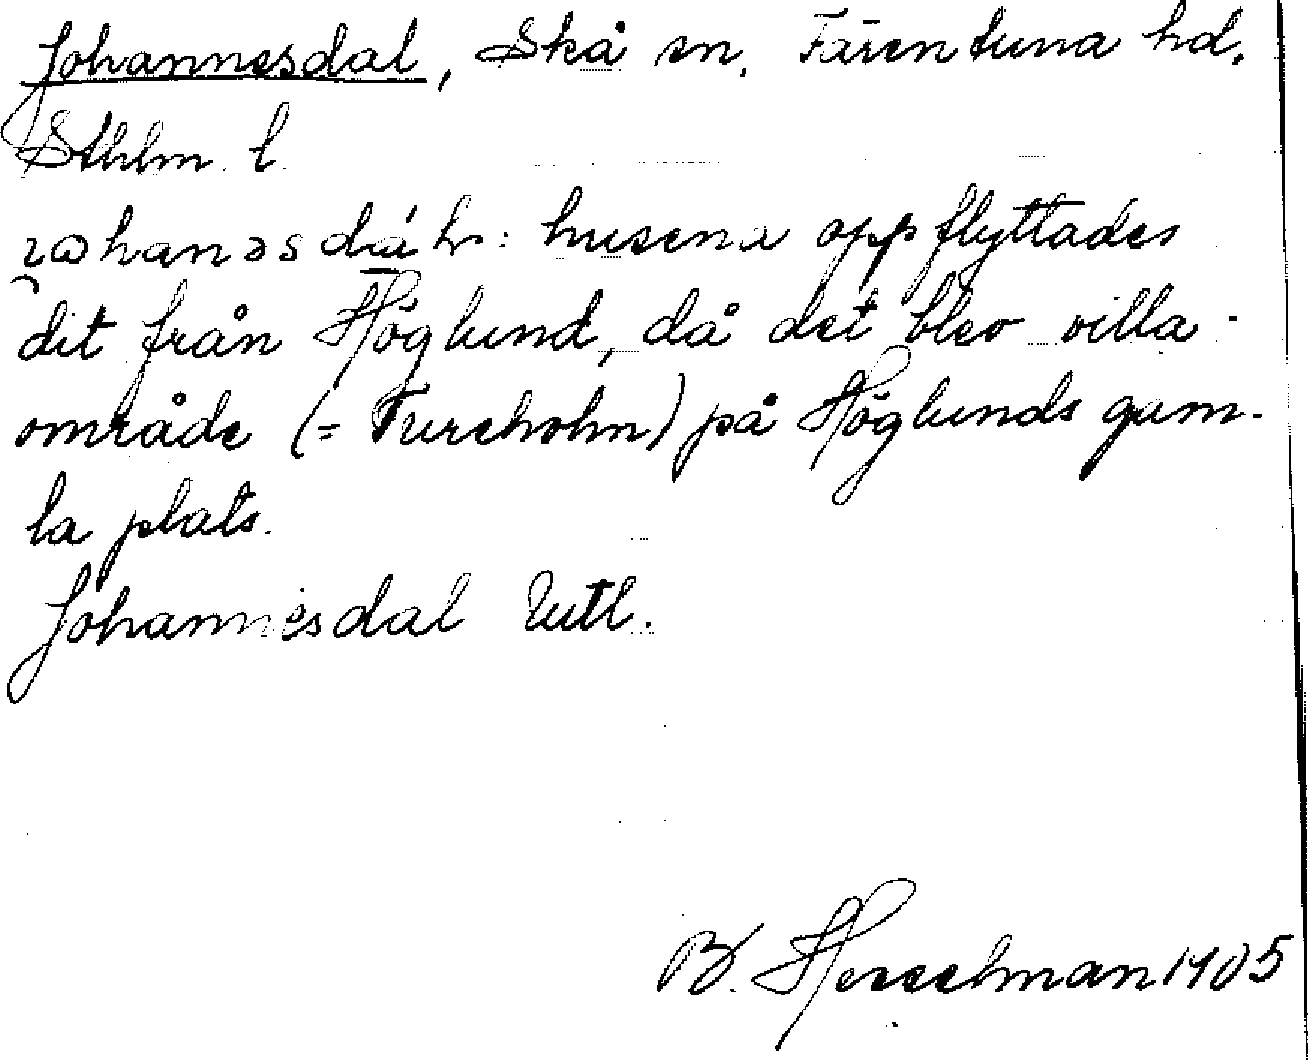 Johannesdal, Skå sn, Färentuna hd.
Sthlm. l.
husena uppflyttades
dit från Höglund, då det blev villa-
område (= Tureholm) på Höglunds gam-
la plats.
Johannesdal Utl.
B. Hesselman 1905